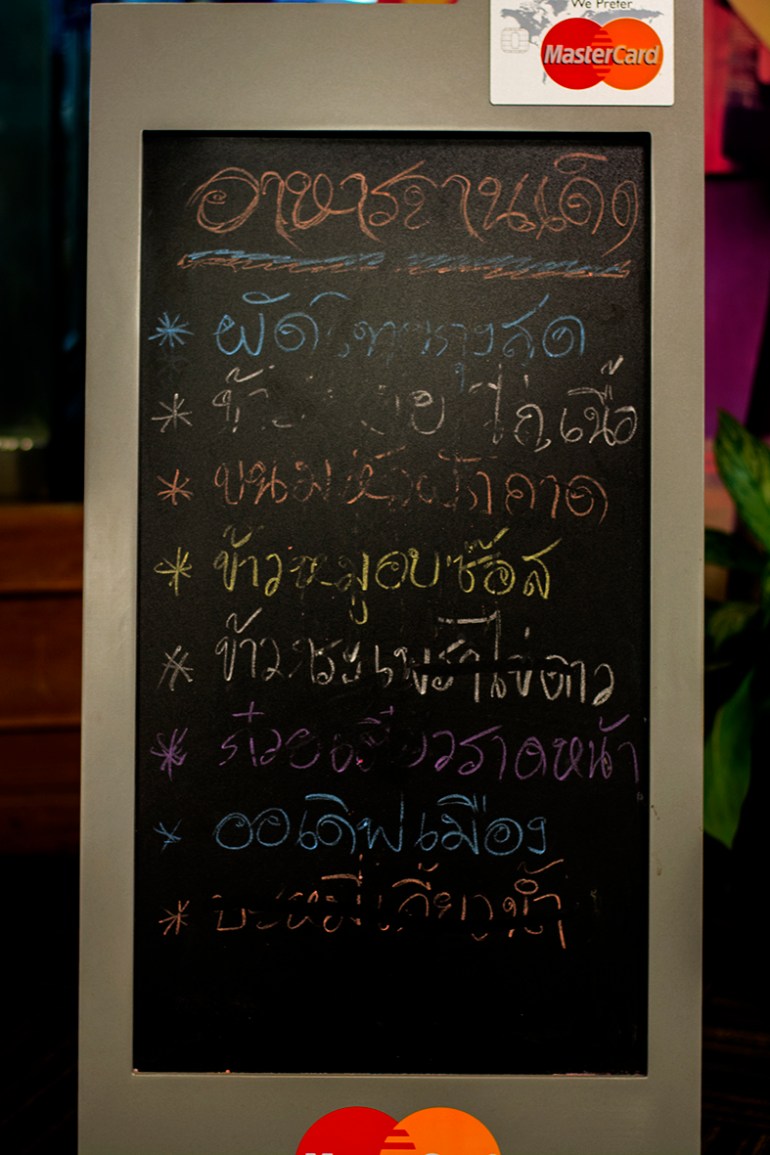 We Prefer
MasterCard
อาหารจานเด็ด
* ผัดไทกุ้งสด
* ไก่ เนื้อ
* ขนมหัวผักกาด
* ข้าวหมูอบซ๊อส
* ข้าวกระเพราไข่ดาว
* ก๋วยเตี๋ยวราดหน้า
* ออเดิฟเมือง
* บะหมี่เกี๊ยวน้ำ